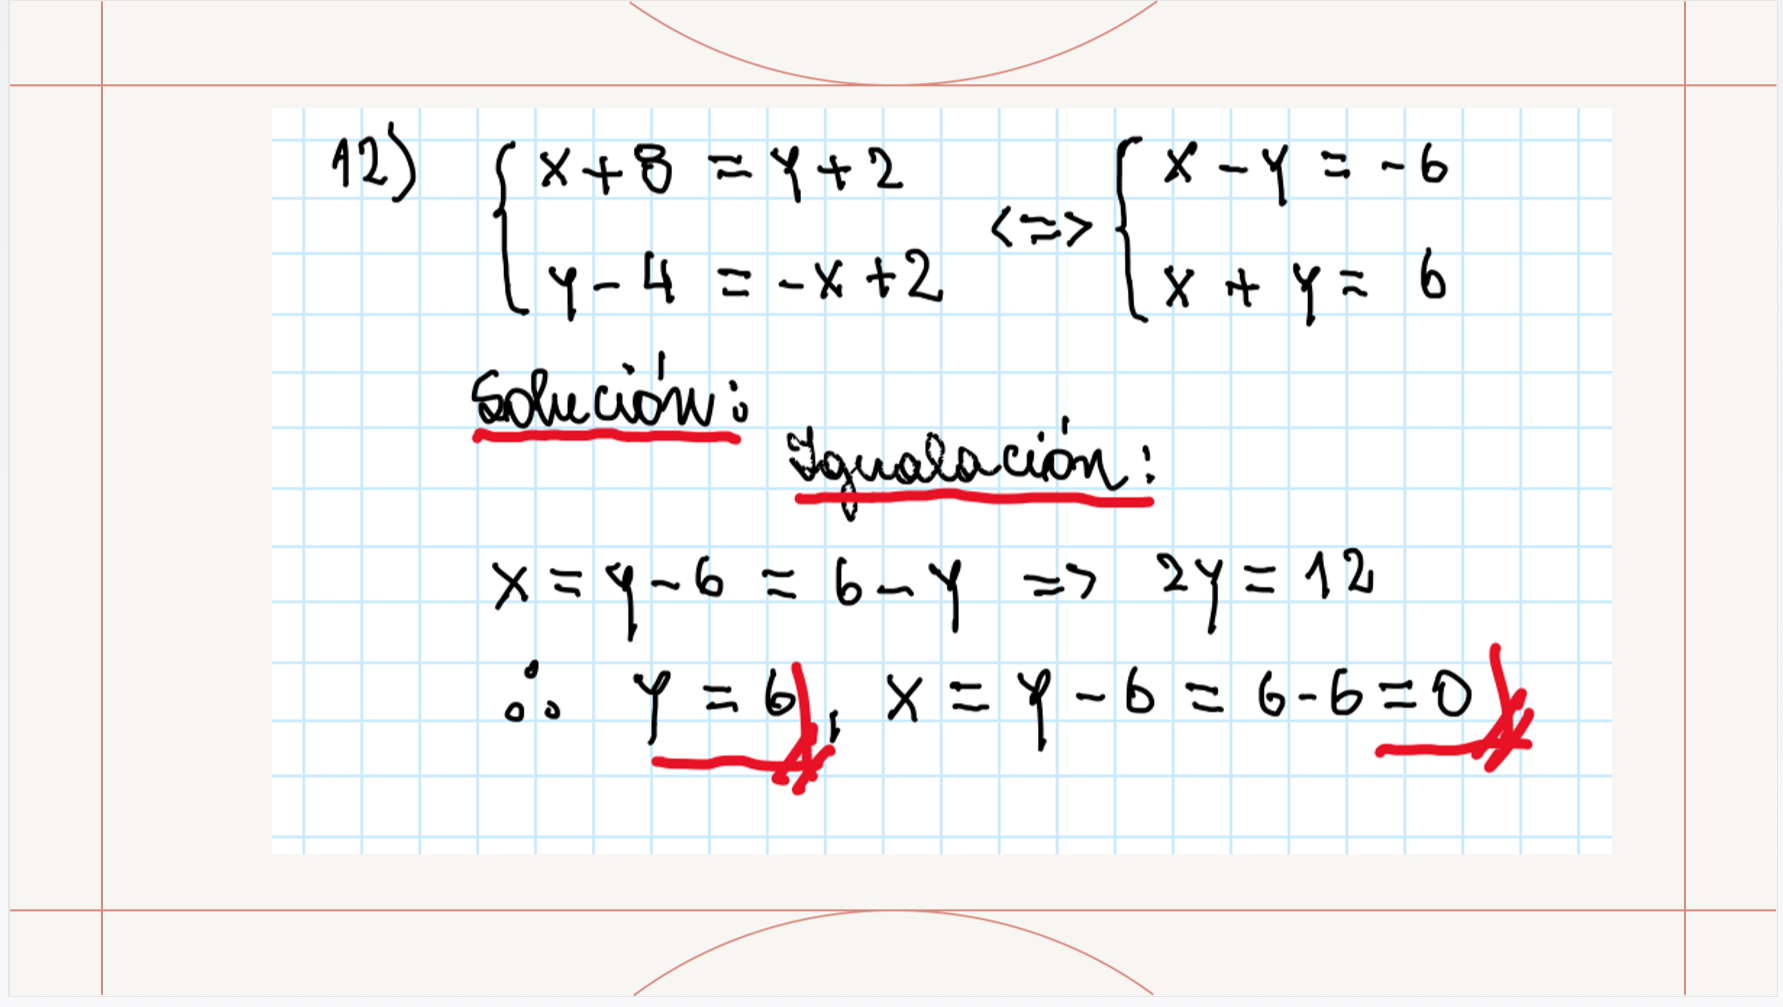 12) { x + 8 = y + 2 <=> { x - y = -6
y - 4 = -x + 2 x + y = 6
Solución:
Igualación:
x = y - 6 = 6 - y => 2y = 12
∴ y = 6, x = y - 6 = 6 - 6 = 0